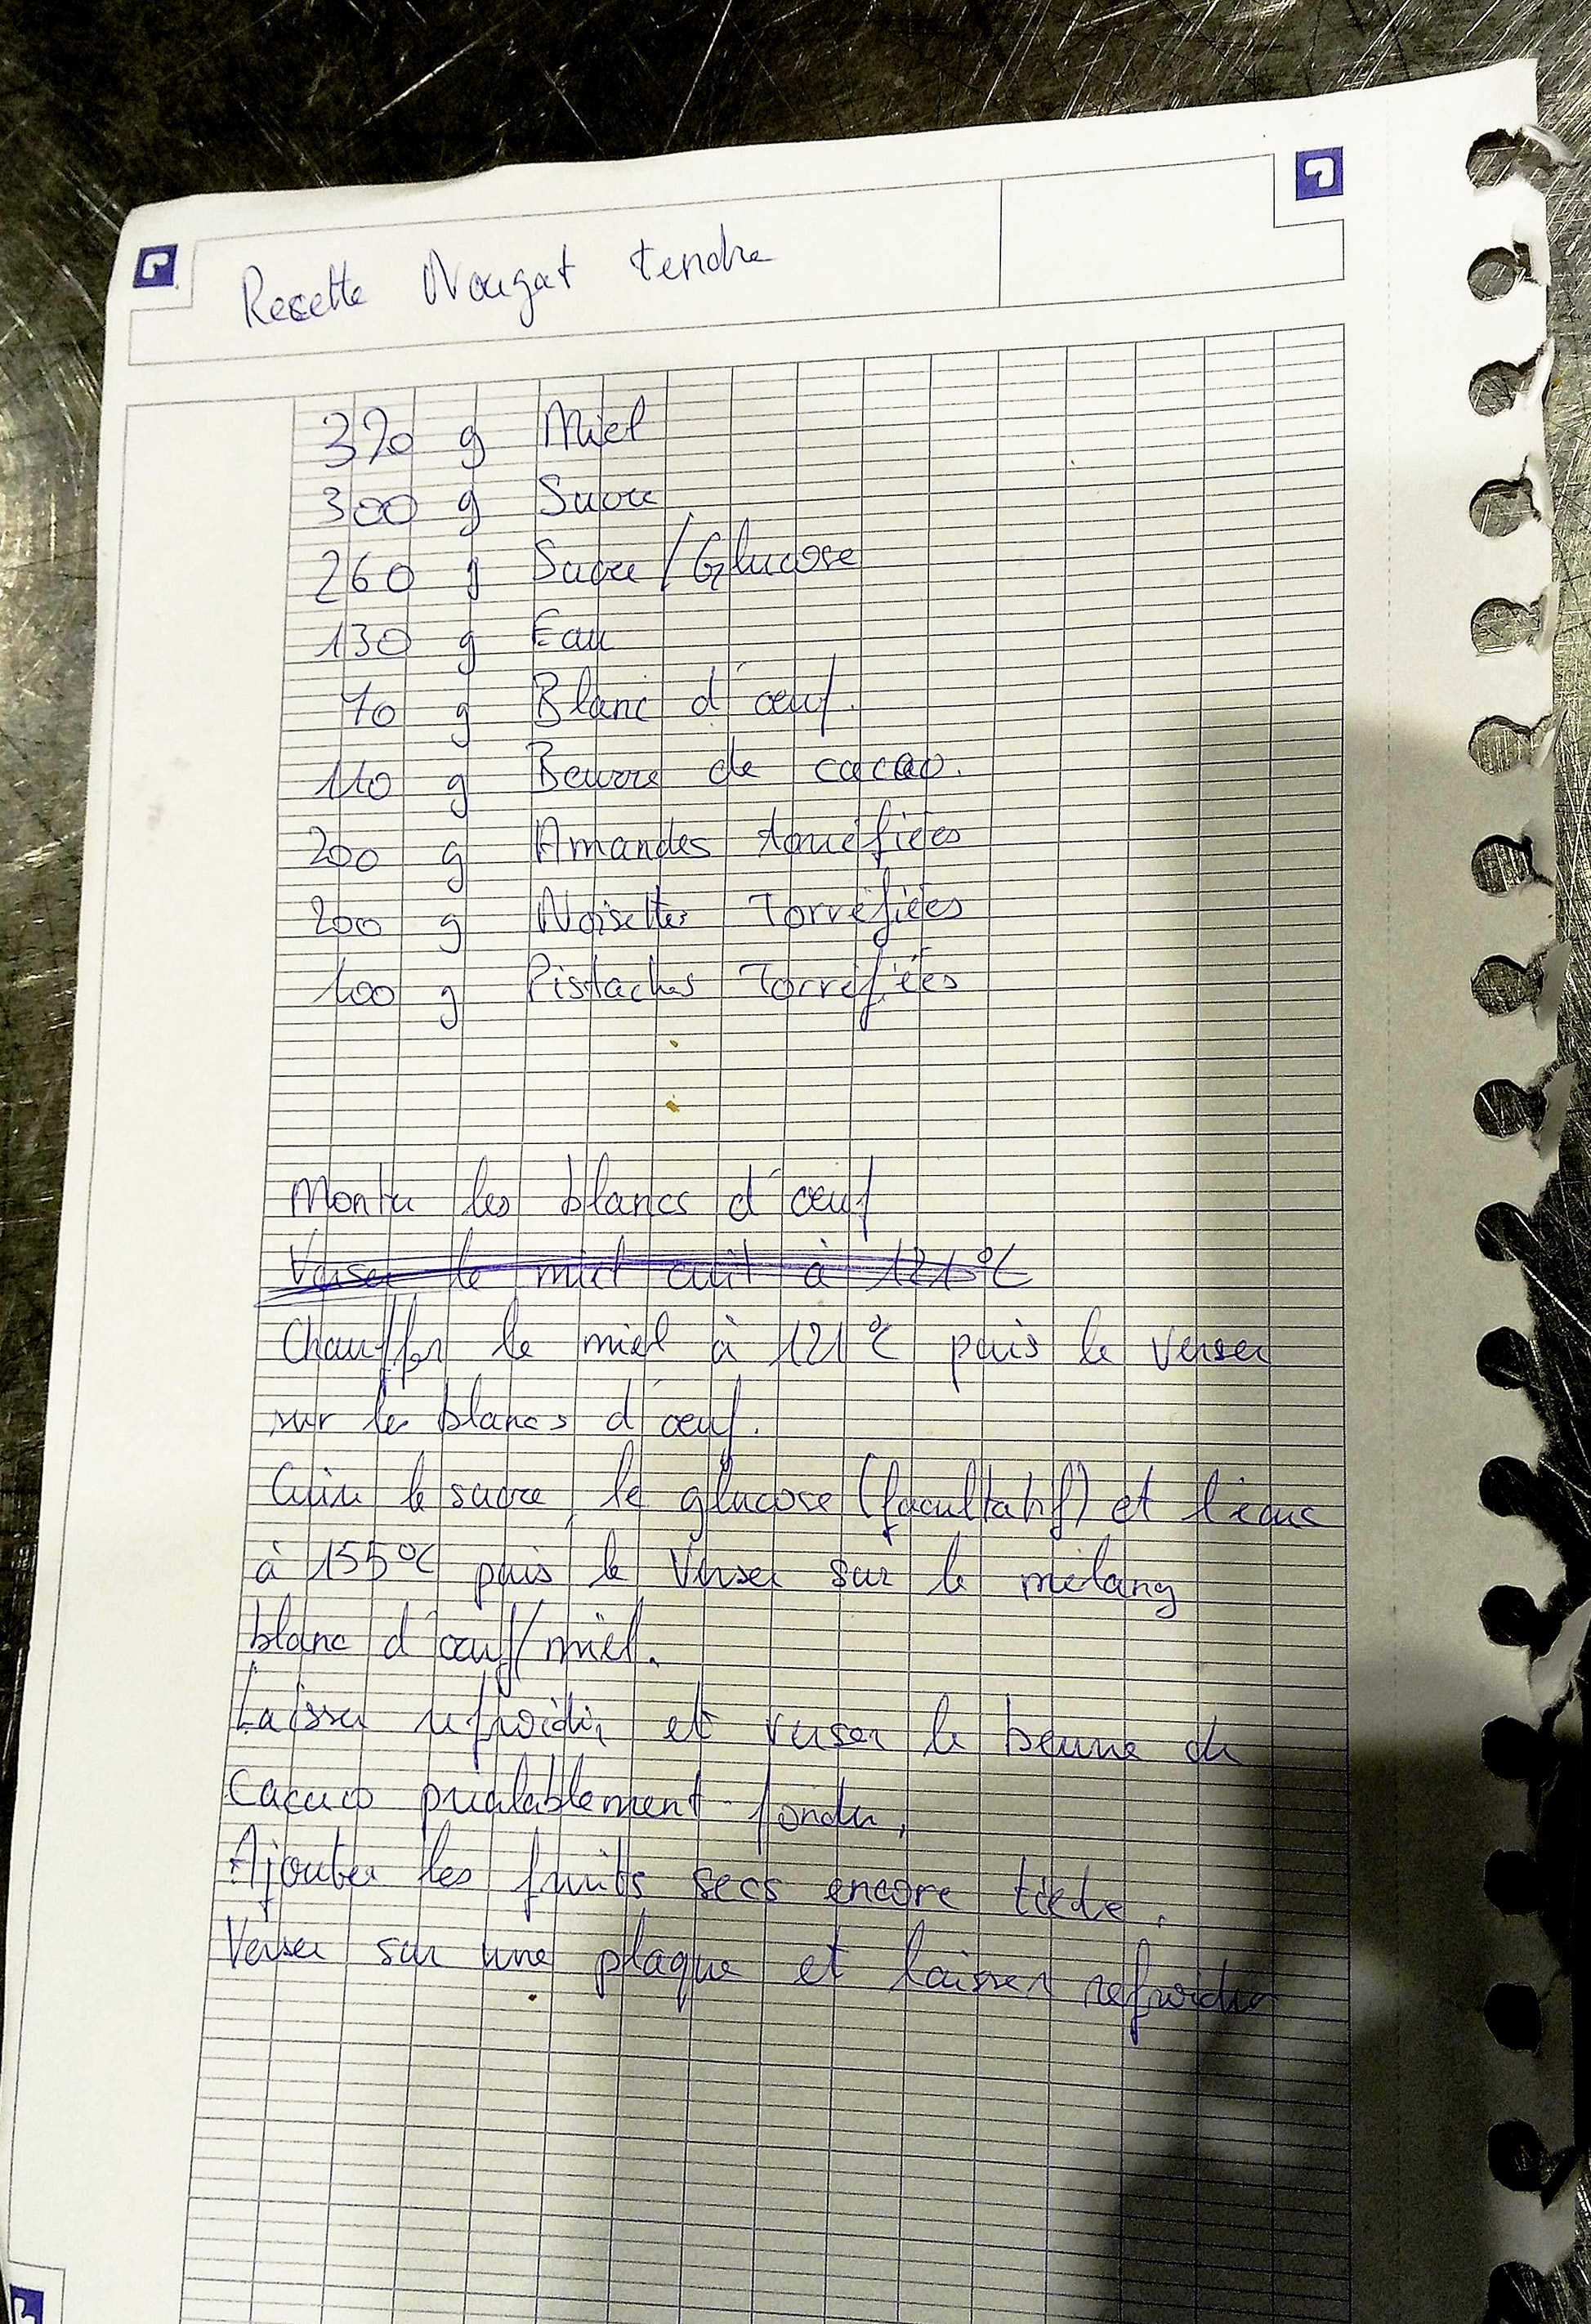 Recette Nougat tendre
370 g Miel
300 g Sucre
260 g Sucre/Glucose
130 g Eau
70 g Blanc d'œuf.
110 g Beurre de cacao.
200 g Amandes torréfiées
200 g Noisettes Torréfiées
100 g Pistaches Torréfiées
Monter les blancs d'œuf
Verser le miel cuit à 121°C
Chauffer le miel à 121°C puis le verser
sur les blancs d'œuf.
Cuire le sucre, le glucose (facultatif) et l'eau
à 155°C puis le verser sur le mélang
blanc d'œuf/miel.
Laisser refroidir et verser le beurre de
cacao préalablement fondu.
Ajouter les fruits secs encore tiède.
Verser sur une plaque et laisser refroidir